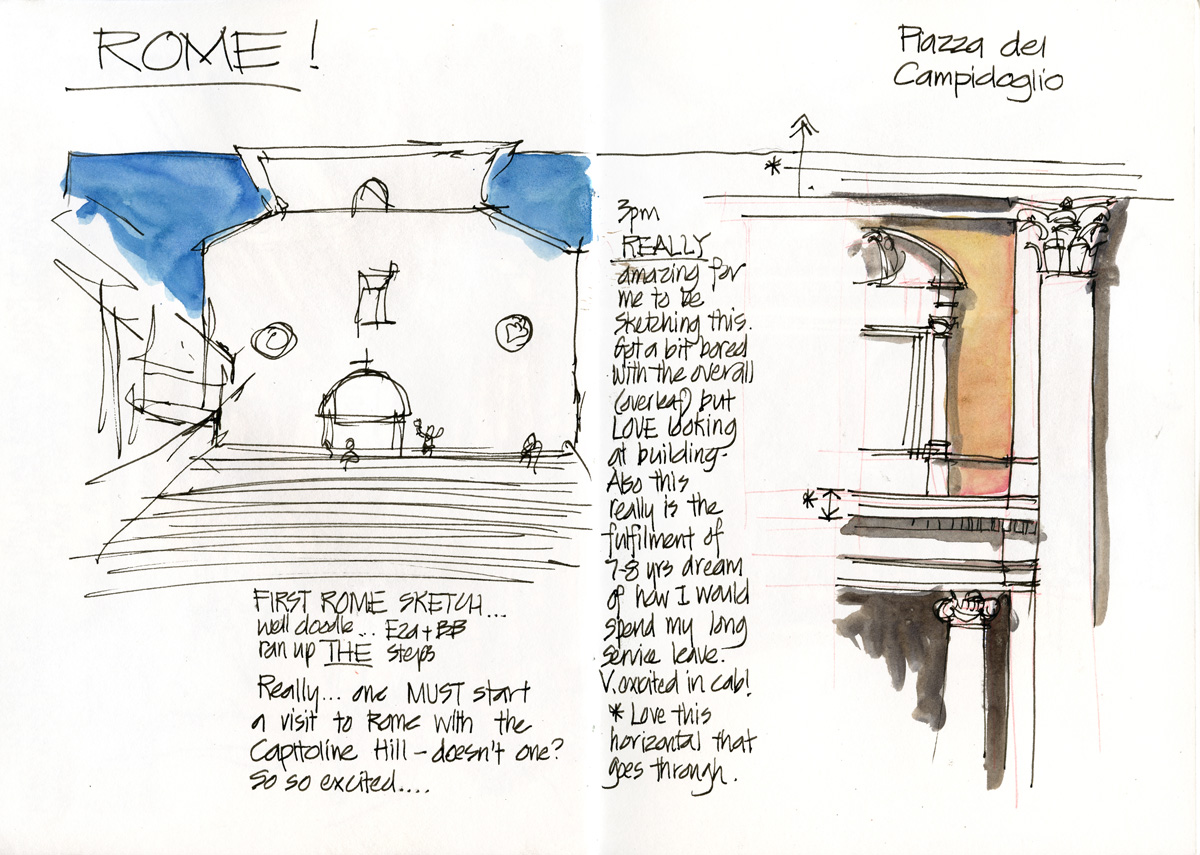 ROME!
FIRST ROME SKETCH...
well doodle... Eza + BB
ran up THE steps
Really... one MUST start
a visit to Rome with the
Capitoline Hill - doesn't one?
So so excited....
Piazza del
Campidoglio
3pm
REALLY
amazing for
me to be
sketching this.
Got a bit bored
with the overall
(overleaf) but
LOVE looking
at building-
Also this
really is the
fulfilment of
7-8 yrs dream
of how I would
spend my long
service leave.
V. excited in cab!
* Love this
horizontal that
goes through.
*
*